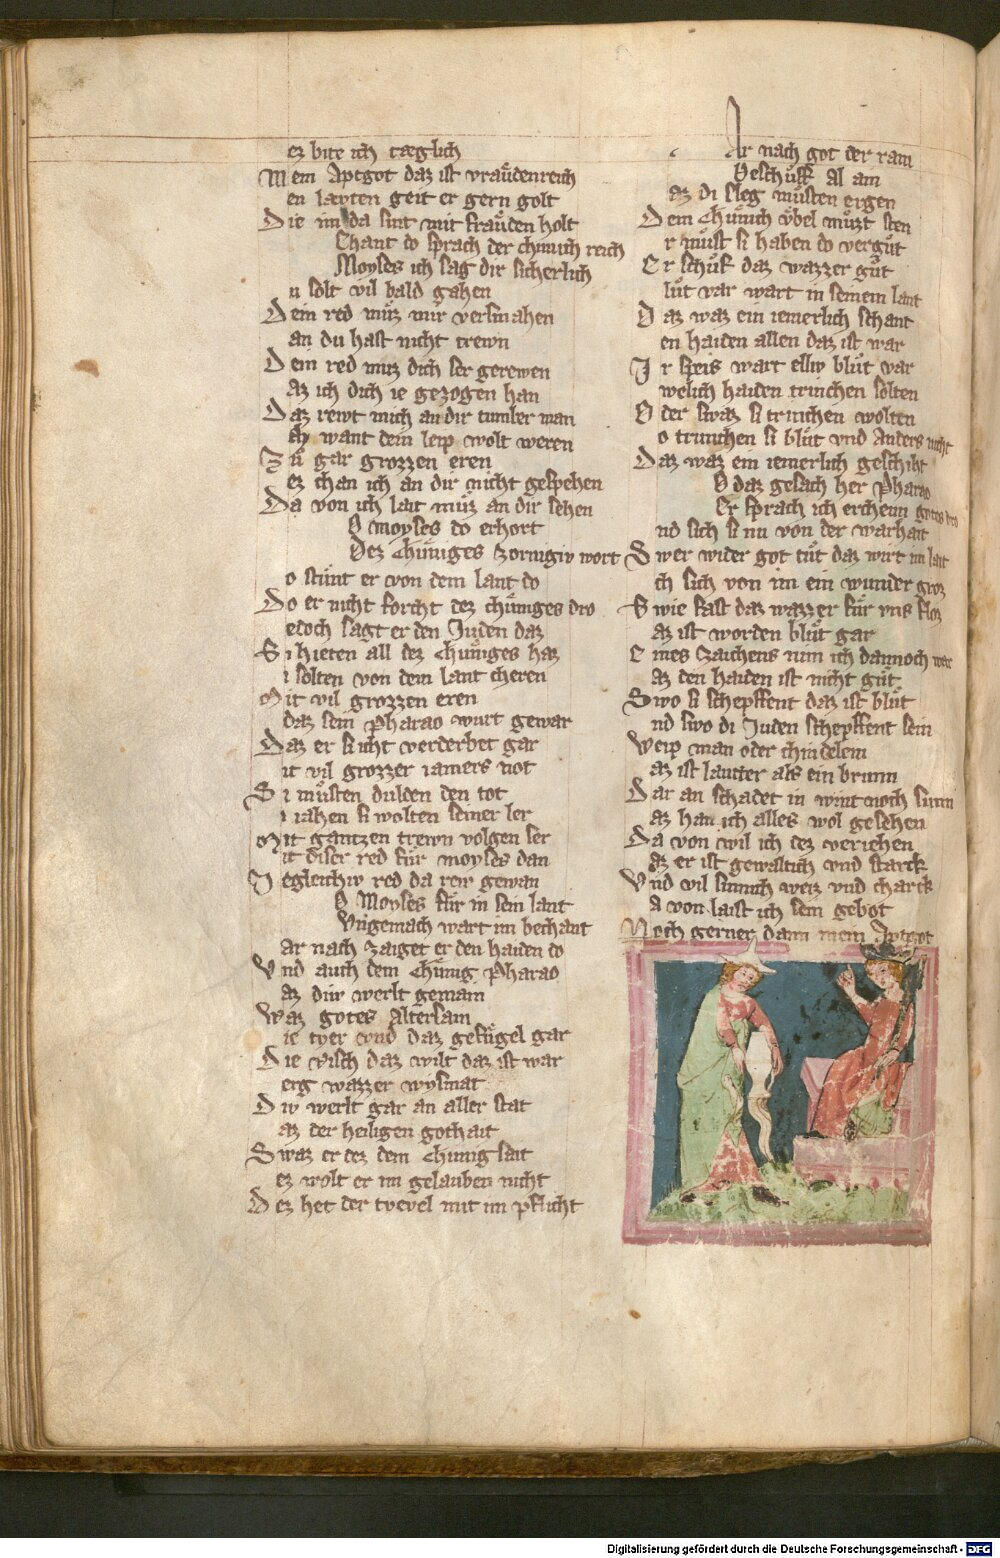 ez bite ich tæglich
Mein Aptgot daz ist vraͤudenreich
en læwten geit er gern golt
Die im da sint mit fraͤuden holt
Chant do sprach der chunich reich
Moyses ich sag dir sicherlich
u solt vil bald gahen
Dein red muz mir versmahen
an du hast nicht trewn
Dein red muz dich ser gerewen
az ich dich ie gezogen han
Daz rewt mich an dir tumler man
ch want dein leip wolt weren
Zuͤ gar grozzen eren
ez chan ich an dir nicht gespehen
Da von ich lait muͤz an dir sehen
O moyses do erhort
Dez chuͤniges zornigiv wort
o stuͤnt er von dem lant do
Do er nicht forcht dez chuͤniges dro
edoch sagt er den Juden daz
Si hieten all dez chuͤniges haz
i solten von dem lant cheren
Mit vil grozzen eren
daz sein Pharao wurt gewar
Daz er si icht verderbet gar
it vil grozzer iamers not
Si muͤsten dulden den tot
i iahen si wolten seiner ler
Mit gantzen trewn volgen ser
it diser red fuͤr moyses dan
Iegleichiv red da rew gewan
O Moyses fuͤr in sein lant
Vngemach wart im bechant
ar nach zaiget er den haiden do
Vnd auch dem chuͤnig Pharao
az diu werlt gemain
Waz gotes altersain
ie tyer vnd daz gefuͤgel gar
Die visch daz wilt daz ist war
erg wazzer wysmat
Div werlt gar an aller stat
az der heiligen gothait
Swaz er dez dem chunig sait
ez wolt er im gelauben nicht
Dez het der tvevel mit im pflicht
Ar nach got der rain
Beschuͤff al am
az di sleg muͤsten ergen
Dem chuͤnich vͤbel muͤzt sten
r muͤst si haben do verguͤt
Er schuͤf daz wazzer guͤt
luͤt var wart in seinem lant
Daz waz ein iemerlich schant
en haiden allen daz ist war
Ir speis wart elliv bluͤt var
welich haiden trinchen solten
Oder swaz si trinchen wolten
o trunchen si bluͤt vnd anders nicht
Daz waz ein iemerlich geschiht
O daz gesach her Pharao
Er sprach ich erchenn gotes dro
nd sich si nu von der warhait
Swer wider got tuͤt daz wirt im lait
ch sich von im ein wunder groz
Swie fast daz wazzer fuͤr vns floz
az ist worden bluͤt gar
Eines zaichens nim ich dannoch war
az den haiden ist nicht guͤt
Swo si schepffent daz ist bluͤt
nd swo di Juden schepffent sein
Weip man oder chindelein
az ist lautter als ein brunn
Dar an schadet in wint noch sunn
az han ich alles wol gesehen
Da von wil ich dez veriehen
az er ist gewaltich vnd starck
Vnd vil sinnich weiz vnd charck
a von laist ich sein gebot
Noch gerner dann mein Aptgot
Digitalisierung gefördert durch die Deutsche Forschungsgemeinschaft - DFG